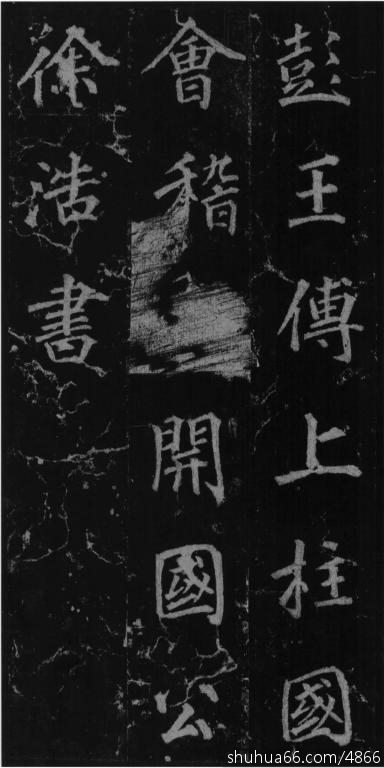 彭王傅上柱國
會稽開國公
徐浩書
shuhua66.com/4866